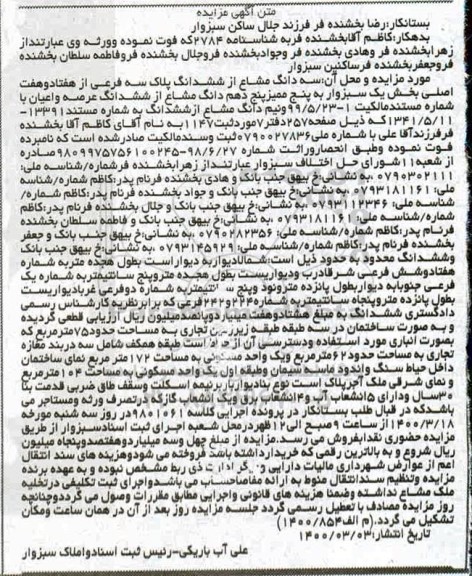 متن آگهی مزایده
بستانکار:رضا بخشنده فر فرزند جلال ساکن سبزوار
بدهکار:کاظم آقابخشنده فربه شناسنامه ۲۷۸۴که فوت نموده وورثه وی عبارتنداز
زهرابخشنده فر وهادی بخشنده فر وجوادبخشنده فروجلال بخشنده فروفاطمه سلطان بخشنده
فروجعفربخشنده فرساکنین سبزوار
مورد مزایده و محل آن:سه دانگ مشاع از ششدانگ پلاک سه فرعی از هفتادوهفت
اصلی بخش یک سبزوار به پنج ممیزپنج دهم دانگ مشاع از ششدانگ عرصه واعیان با
شماره مستندمالکیت ۱-۹۹/۵/۲۳ونیم دانگ مشاع ازششدانگ به شماره مستند۱۳۳۹۱-
۱۳۴۱/۵/۱۱که ذیل صفحه۲۵۷دفتر۷موردثبت۱۱۴۷به نام آقای کاظم آقا بخشنده
فرفرزندآقا علی با شماره ملی۰۷۹۰۰۲۷۸۳۶ثبت وسندمالکیت صادرشده است که نامبرده
فوت نموده وطبق انحصاروراثت شماره ۹۸۰۹۹۷۵۷۵۶۱۰۰۲۴۵-۹۸/۶/۲۷صادره
از شعبه۱۱شورای حل اختلاف سبزوار عبارتنداز زهرابخشنده فرشماره/شناسه ملی:
۰۷۹۰۳۰۲۱۱۱ ،به نشانی:خ بیهق جنب بانک و هادی بخشنده فرنام پدر:کاظم شماره/شناسه
ملی: ۰۷۹۳۱۸۱۱۶۱ ،به نشانی:خ بیهق جنب بانک و جواد بخشنده فرنام پدر:کاظم شماره/
شناسه ملی: ،به نشانی:خ بیهق جنب بانک و جلال بخشنده فرنام پدر:کاظم
شماره/شناسه ملی: ۰۷۹۳۱۸۱۱۶۱ ،به نشانی:خ بیهق جنب بانک و فاطمه سلطان بخشنده
فرنام پدر:کاظم شماره/شناسه ملی: ۰۷۹۰۲۸۲۳۵۶ ،به نشانی:خ بیهق جنب بانک و جعفر
بخشنده فرنام پدر:کاظم شماره/شناسه ملی: ۰۷۹۳۱۴۵۹۲۱ ،به نشانی:خ بیهق جنب بانک
وششدانگ محدود به حدود ذیل است:شمالادیواربه دیواراست بطول هجده متربه شماره
هفتادوشش فرعی شرقادرب ودیواریست بطول هجده متروپنج سانتیمتربه شماره یک
فرعی جنوبابه دیواربطول پانزده مترونود وپنج سانتیمتربه شماره دوفرعی غربادیواریست
بطول پانزده متروپنجاه سانتیمتربه شماره۲۲۴و۲۴۲فرعی که برابرنظریه کارشناس رسمی
دادگستری ششدانگ به مبلغ هشتادوهفت میلیاردوپانصدمیلیون ریال ارزیابی قطعی گردیده
و به صورت ساختمان در سه طبقه طبقه زیرزمین تجاری به مساحت حدود۷۵مترمربع که
بصورت انباری مورد استفاده ودسترسی آن از است طبقه همکف شامل سه دربند مغازه
تجاری به مساحت حدود۶۲مترمربع ویک واحد مسکونی به مساحت ۱۷۲متر مربع نمای ساختمان
داخل حیاط سنگ واندود ماسه سیمان وطبقه اول یک واحد مسکونی به مساحت ۱۰۴مترمربع
و نمای شرقی ملک آجرپلاک است نوع بنادیوارباربرنیمه اسکلت وسقف طاق ضربی قدمت بنا
۳۰سال ودارای ۵انشعاب آب و۴انشعاب برق ویک انشعاب گازکه درتصرف ورثه ومستاجر می
باشدکه در قبال طلب بستانکار در پرونده اجرایی کلاسه ۹۸۰۱۰۶۱در روز سه شنبه مورخه
۱۴۰۰/۳/۱۸از ساعت ۹صبح الی۱۲ظهردرمحل شعبه اجرای ثبت اسنادسبزوار از طریق
مزایده حضوری نقدابفروش می رسد.مزایده از مبلغ چهل وسه میلیاردوهفتصدوپنجاه میلیون
ریال شروع و به بالاترین رقمی که خریدارداشته باشد فروخته می شودوهزینه های سند انتقال
اعم از عوارض شهرداری مالیات دارایی و ادارات ذی ربط مشخص نبوده و به عهده برنده
مزایده وتنظیم سندانتقال منوط به ارائه مفاصاحساب می باشدواجرای ثبت تکلیفی درتخلیه
ملک مشاع نداشته وضمنا هزینه های قانونی واجرایی مطابق مقررات وصول می گرددوچنانچه
روز مزایده مصادف با تعطیل رسمی گردد جلسه مزایده روز بعد از آن در همان ساعت ومکان
تشکیل می گردد.(م الف۱۴۰۰/۸۵۴)
تاریخ انتشار:۱۴۰۰/۰۳/۰۳
علی آب باریکی-رئیس ثبت اسنادواملاک سبزوار